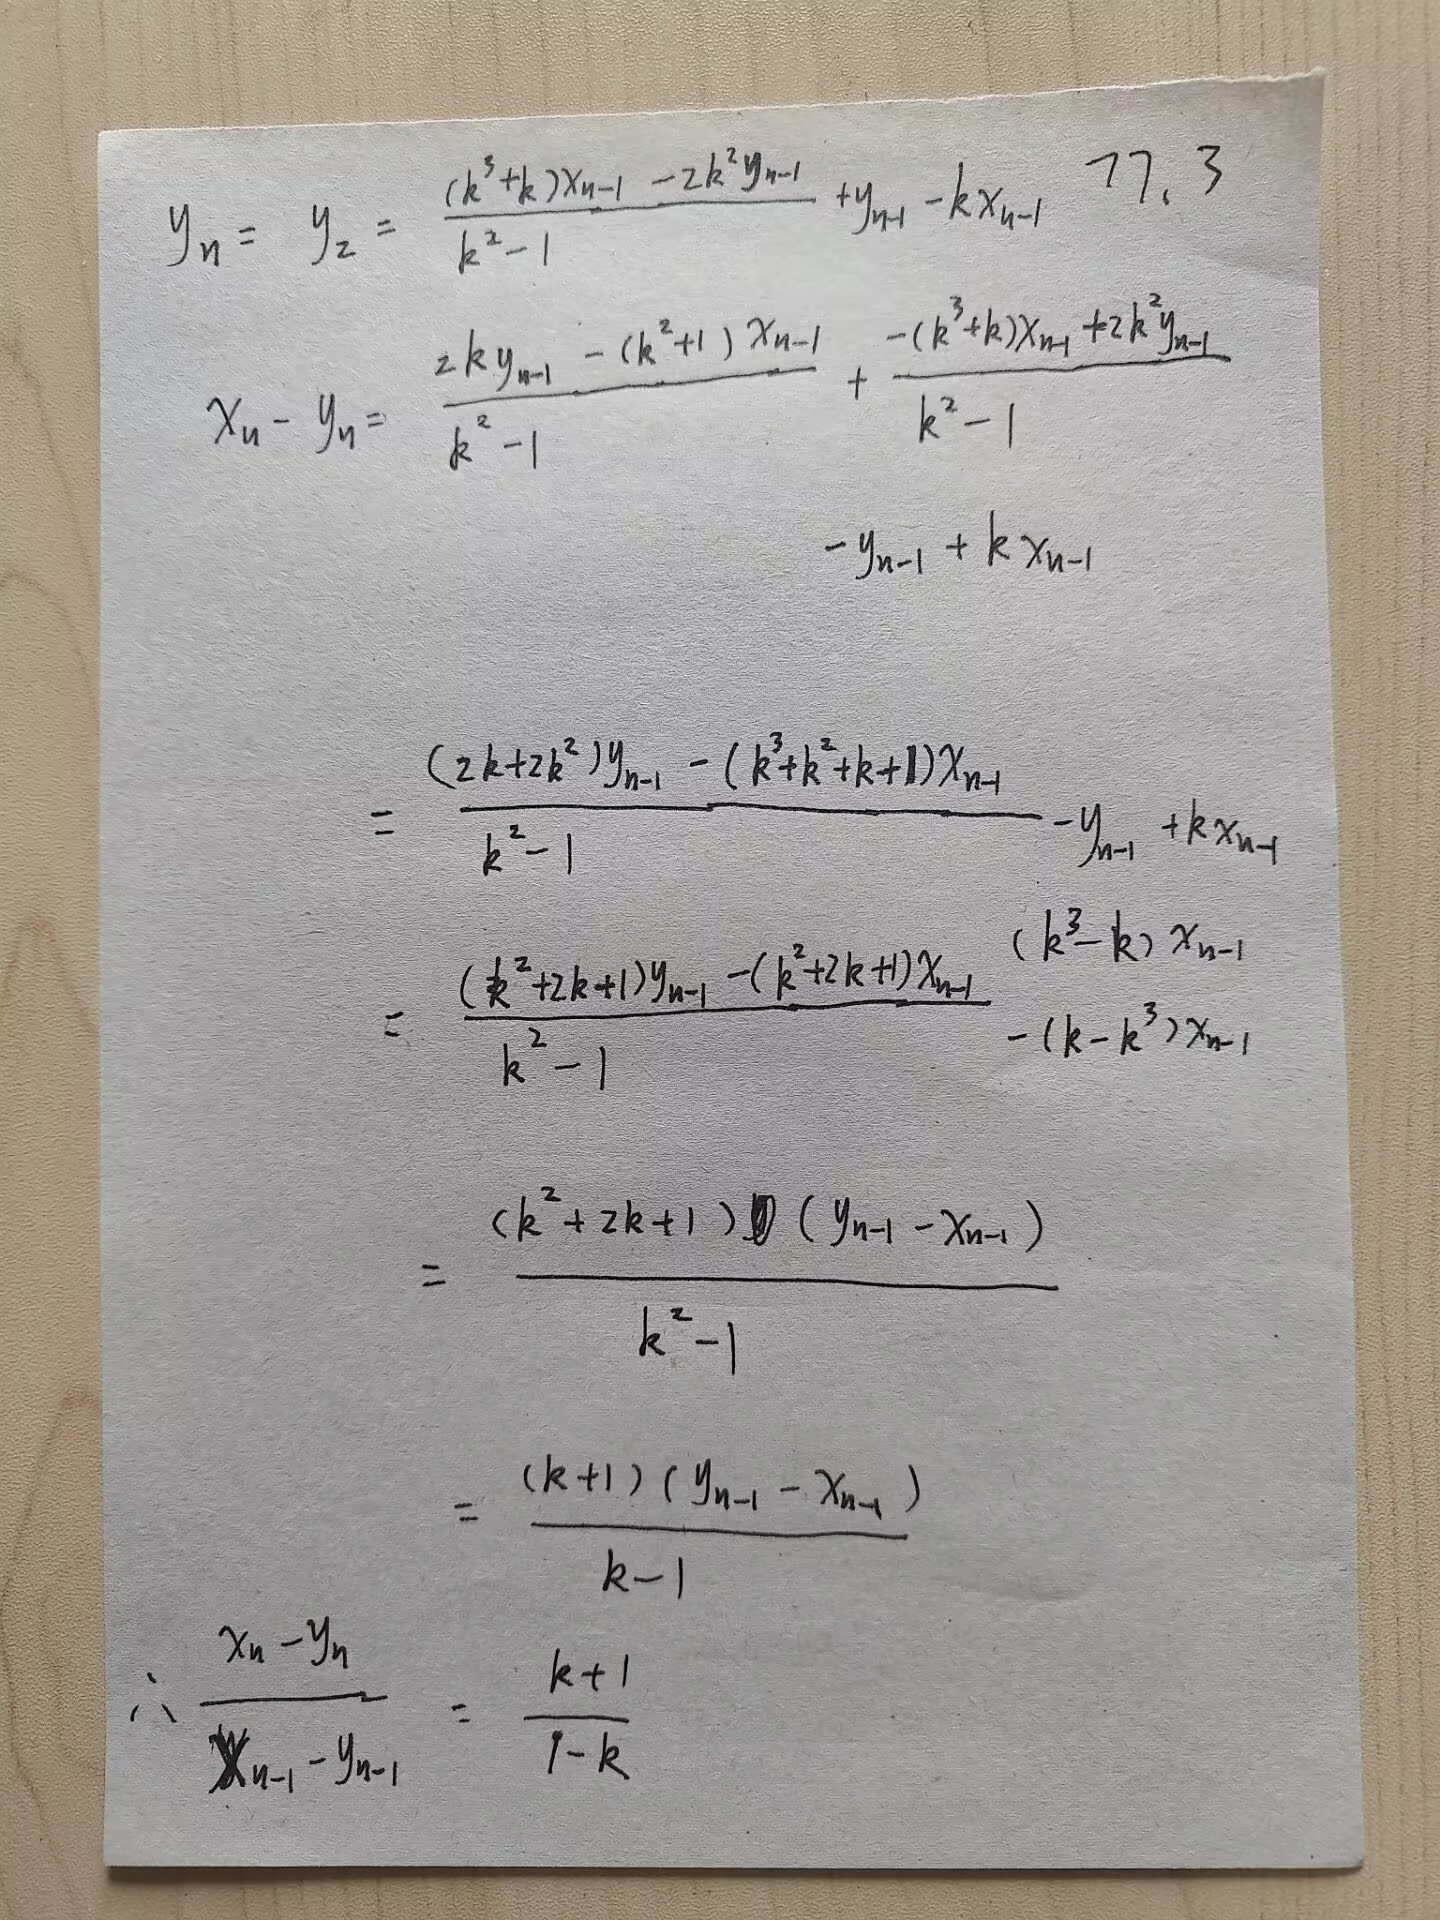 77.3
yₙ = y₂ = ((k³+k)xₙ₋₁ - 2k²yₙ₋₁)/(k²-1) + yₙ₋₁ - kxₙ₋₁
xₙ - yₙ = (2kyₙ₋₁ - (k²+1)xₙ₋₁)/(k²-1) + (-(k³+k)xₙ₋₁ + 2k²yₙ₋₁)/(k²-1)
- yₙ₋₁ + kxₙ₋₁
= ((2k+2k²)yₙ₋₁ - (k³+k²+k+1)xₙ₋₁)/(k²-1) - yₙ₋₁ + kxₙ₋₁
(k³-k)xₙ₋₁
= ((k²+2k+1)yₙ₋₁ - (k²+2k+1)xₙ₋₁)/(k²-1)
-(k-k³)xₙ₋₁
= ((k²+2k+1)(yₙ₋₁ - xₙ₋₁))/(k²-1)
= ((k+1)(yₙ₋₁ - xₙ₋₁))/(k-1)
∴ (xₙ - yₙ)/(xₙ₋₁ - yₙ₋₁) = (k+1)/(1-k)